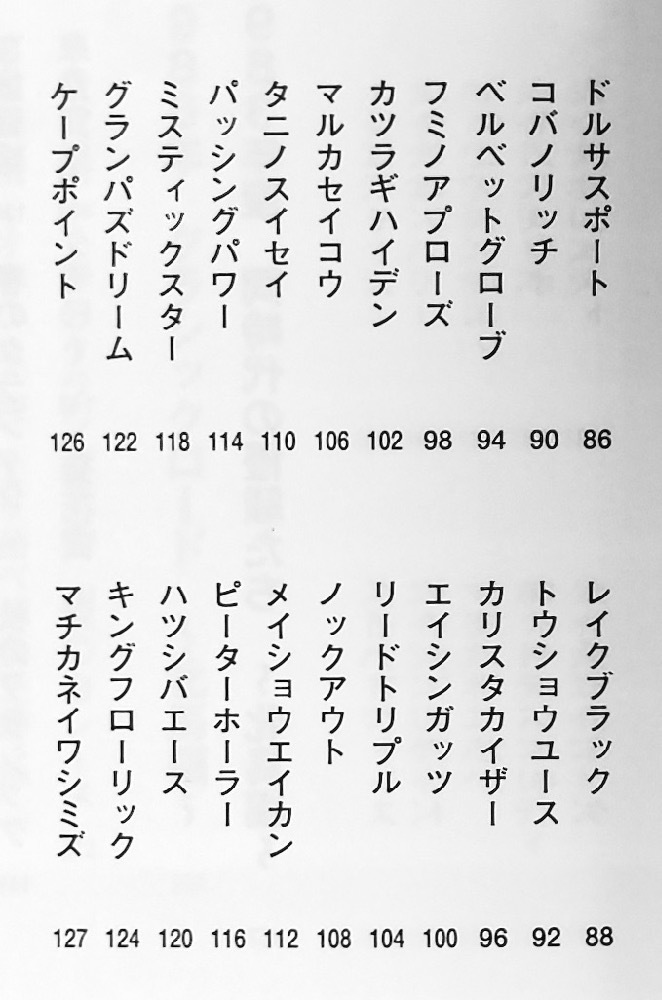 ドルサスポート 86
コバノリッチ 90
ベルベットグローブ 94
フミノアプローズ 98
カツラギハイデン 102
マルカセイコウ 106
タニノスイセイ 110
パッシングパワー 114
ミスティックスター 118
グランパズドリーム 122
ケープポイント 126
レイクブラック 88
トウショウユース 92
カリスタカイザー 96
エイシンガッツ 100
リードトリプル 104
ノックアウト 108
メイショウエイカン 112
ピーターホーラー 116
ハツシバエース 120
キングフローリック 124
マチカネイワシミズ 127